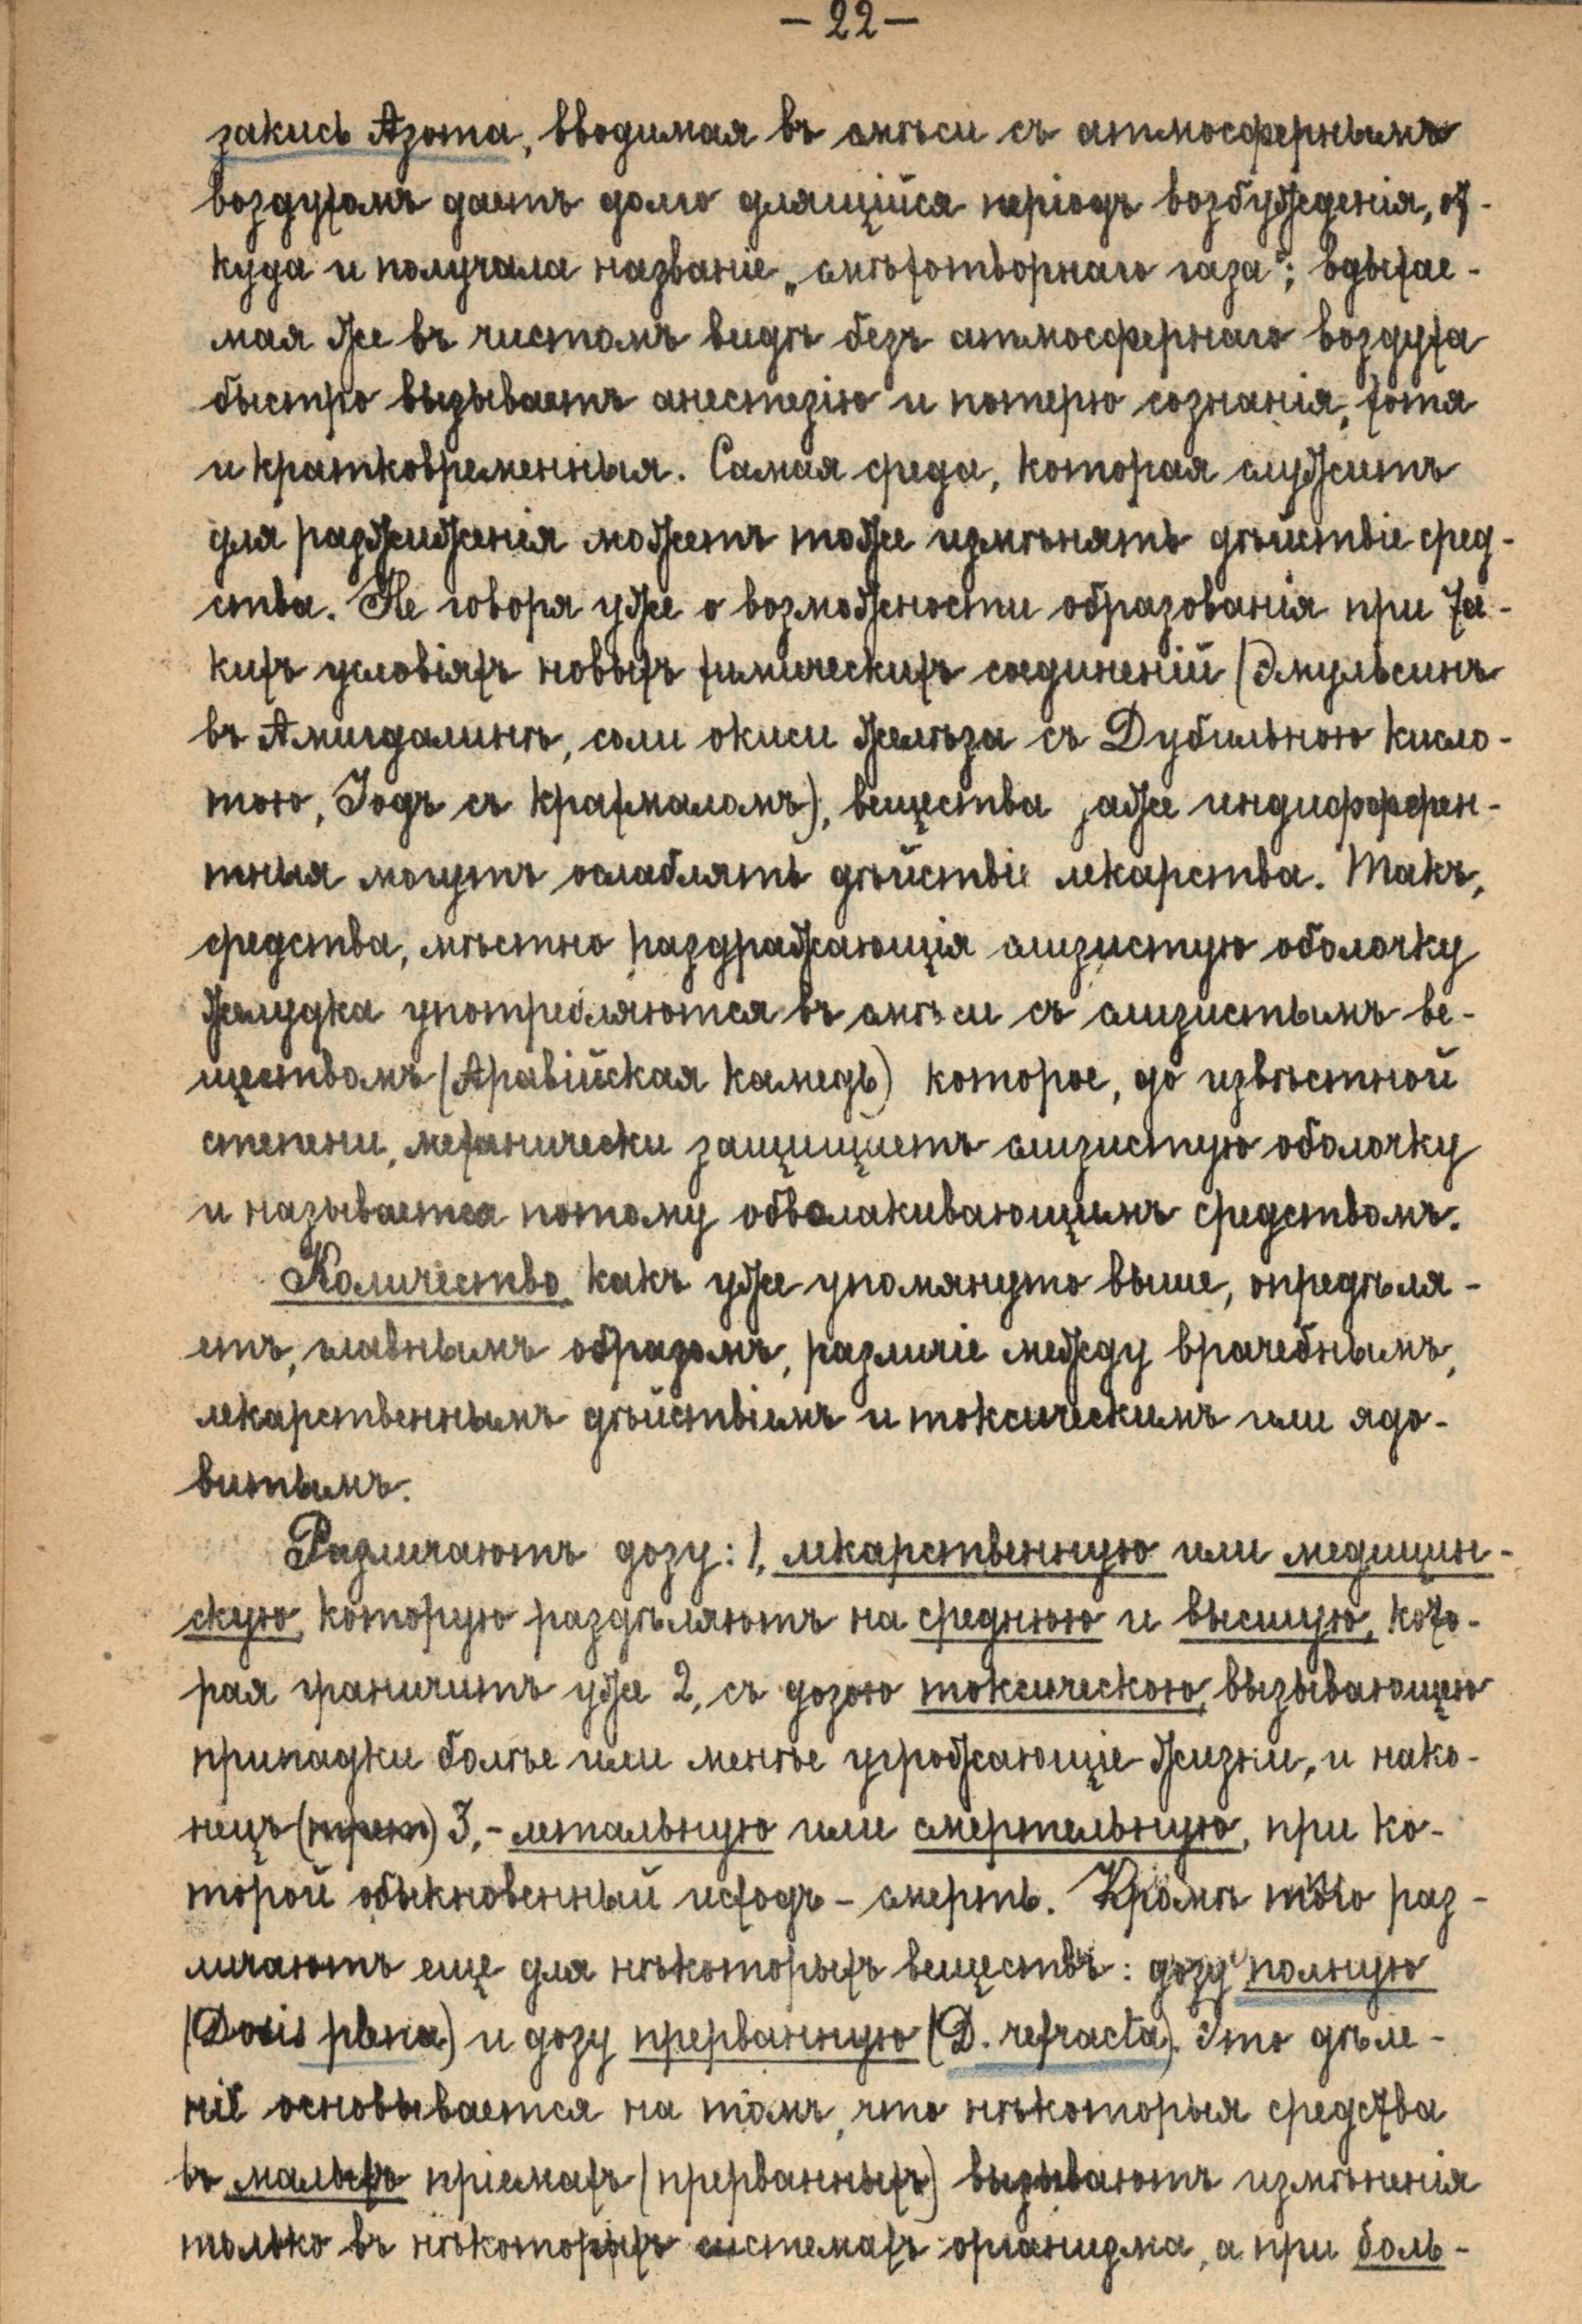 — 22 —
закись Азота, вводимая въ смѣси съ атмосфернымъ
воздухомъ даетъ долго длящійся періодъ возбужденія, от-
куда и получала названіе „смѣхотворнаго газа“; вдыхае-
мая же въ чистомъ видѣ безъ атмосфернаго воздуха
быстро вызываетъ анестезію и потерю сознанія, хотя
и кратковременныя. Самая среда, которая служитъ
для разжиженія можетъ тоже измѣнять дѣйствіе сред-
ства. Не говоря уже о возможности образованія при та-
кихъ условіяхъ новыхъ химическихъ соединеній (Эмульсинъ
въ Амигдалинѣ, соли окиси желѣза съ Дубильною кисло-
тою, Іодъ съ крахмаломъ), вещества даже индифферен-
тныя могутъ ослаблять дѣйствіе лекарства. Такъ,
средства, мѣстно раздражающія слизистую оболочку
желудка употребляются въ смѣси съ слизистымъ ве-
ществомъ (Аравійская камедь) которое, до извѣстной
степени, механически защищаетъ слизистую оболочку
и называется потому обволакивающимъ средствомъ.
Количество, какъ уже упомянуто выше, опредѣля-
етъ, главнымъ образомъ, различіе между врачебнымъ,
лекарственнымъ дѣйствіемъ и токсическимъ или ядо-
витымъ.
Различаютъ дозу: 1, лекарственную или медицин-
скую, которую раздѣляютъ на среднюю и высшую, кото-
рая граничитъ уже 2, съ дозою токсическою, вызывающею
припадки болѣе или менѣе угрожающіе жизни, и нако-
нецъ (трет) 3, - летальную или смертельную, при ко-
торой обыкновенный исходъ - смерть. Кромѣ того раз-
личаютъ еще для нѣкоторыхъ веществъ: дозу полную
(Dosis plena) и дозу прерванную (D. refracta). Это дѣле-
ніе основывается на томъ, что нѣкоторыя средства
въ малыхъ пріемахъ (прерванныхъ) вызываютъ измѣненія
только въ нѣкоторыхъ системахъ организма, а при боль-